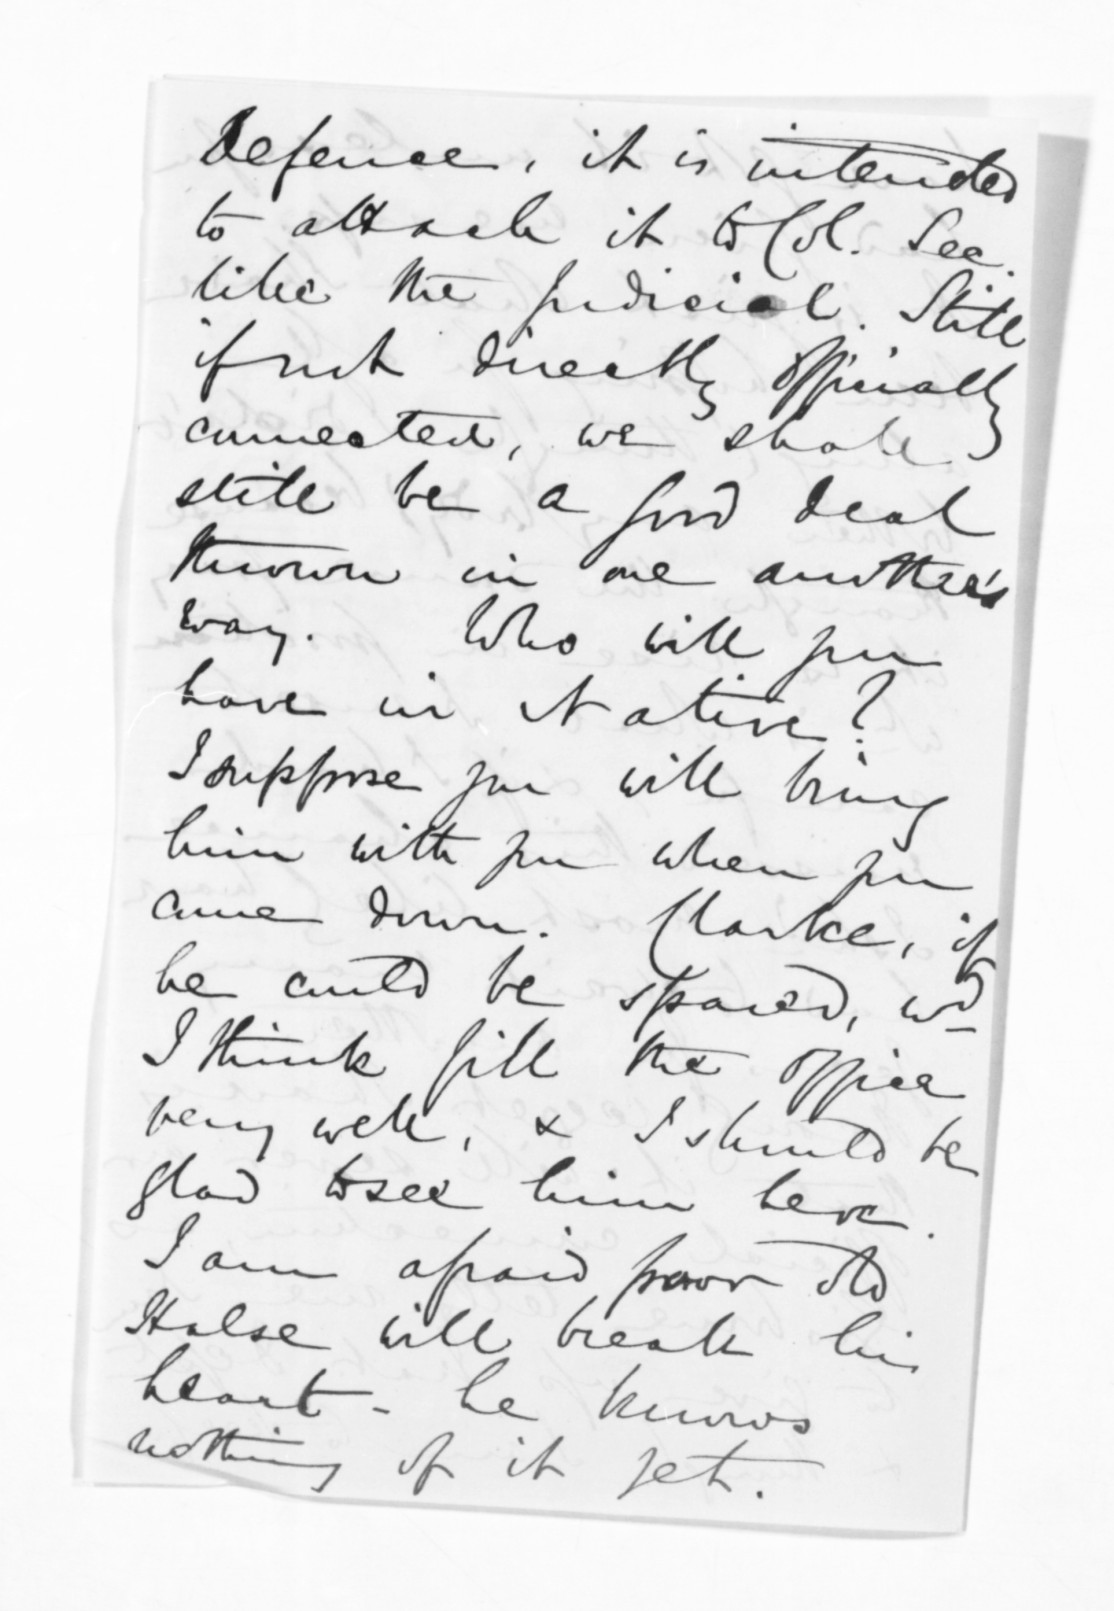 Defence, it is intended
to attach it to Col. Sec.
like the judicial. Still
if not directly officially
connected, we shall
still be a good deal
thrown in one another's
way. Who will you
have in Native?
I suppose you will bring
him with you when you
come down. Clarke, if
he could be spared, wd
I think fill the office
very well, & I should be
glad to see him here.
I am afraid poor old
Halse will break his
heart - he knows
nothing of it yet.